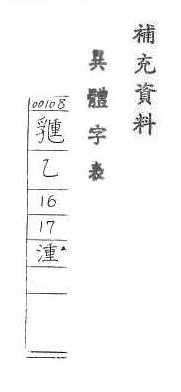 補充資料
異體字表
00108
乙
16
17
湩▲